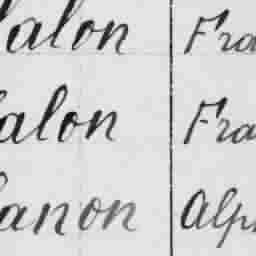 alon Fra
alon Fra
anon Alp